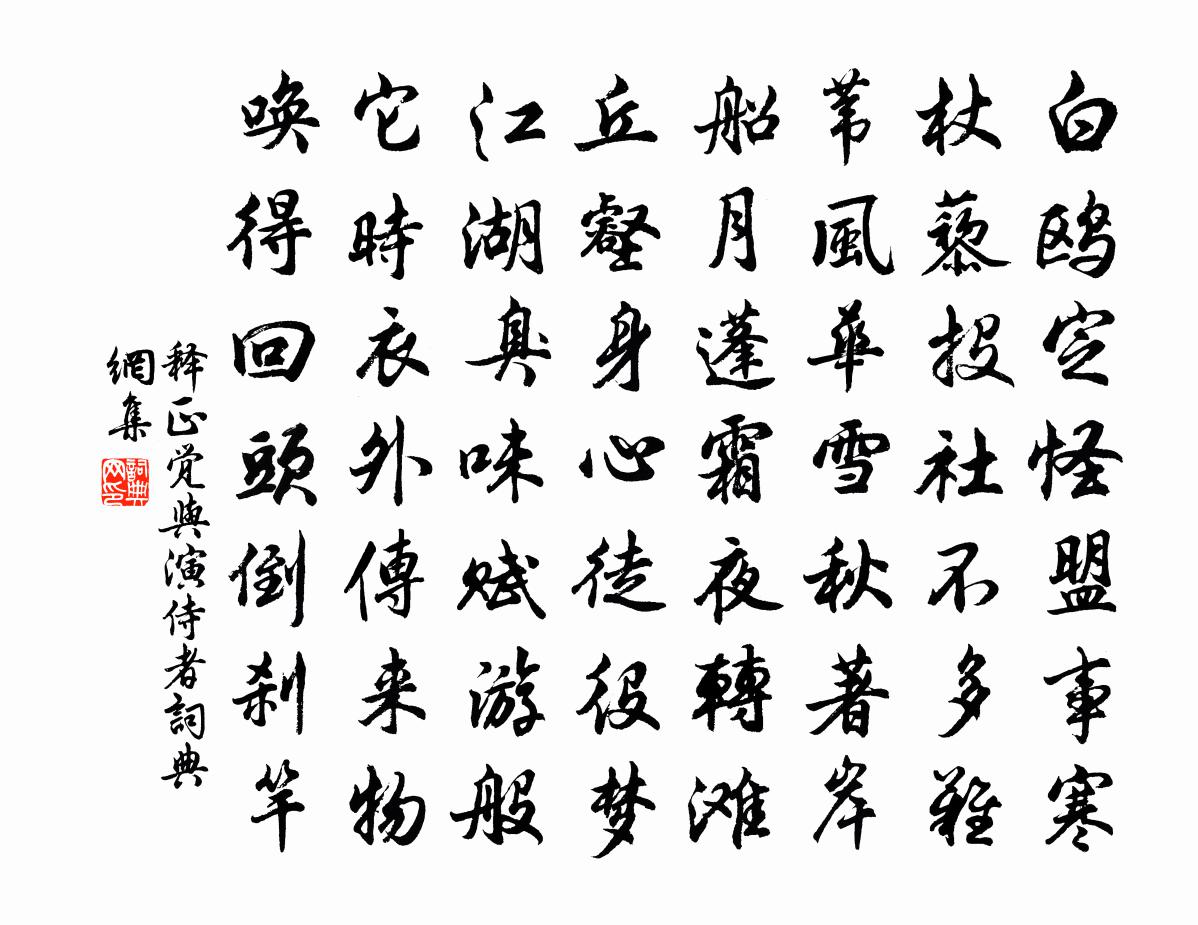 白鸥定怪盟事寒
杖藜投社不多難
苇風華雪秋著岸
船月蓬霜夜轉滩
丘壑身心徒役梦
江湖臭味赋游般
它時衣外傳来物
唤得回頭倒刹竿
释正觉與演侍者詞典
網集
詞典网印